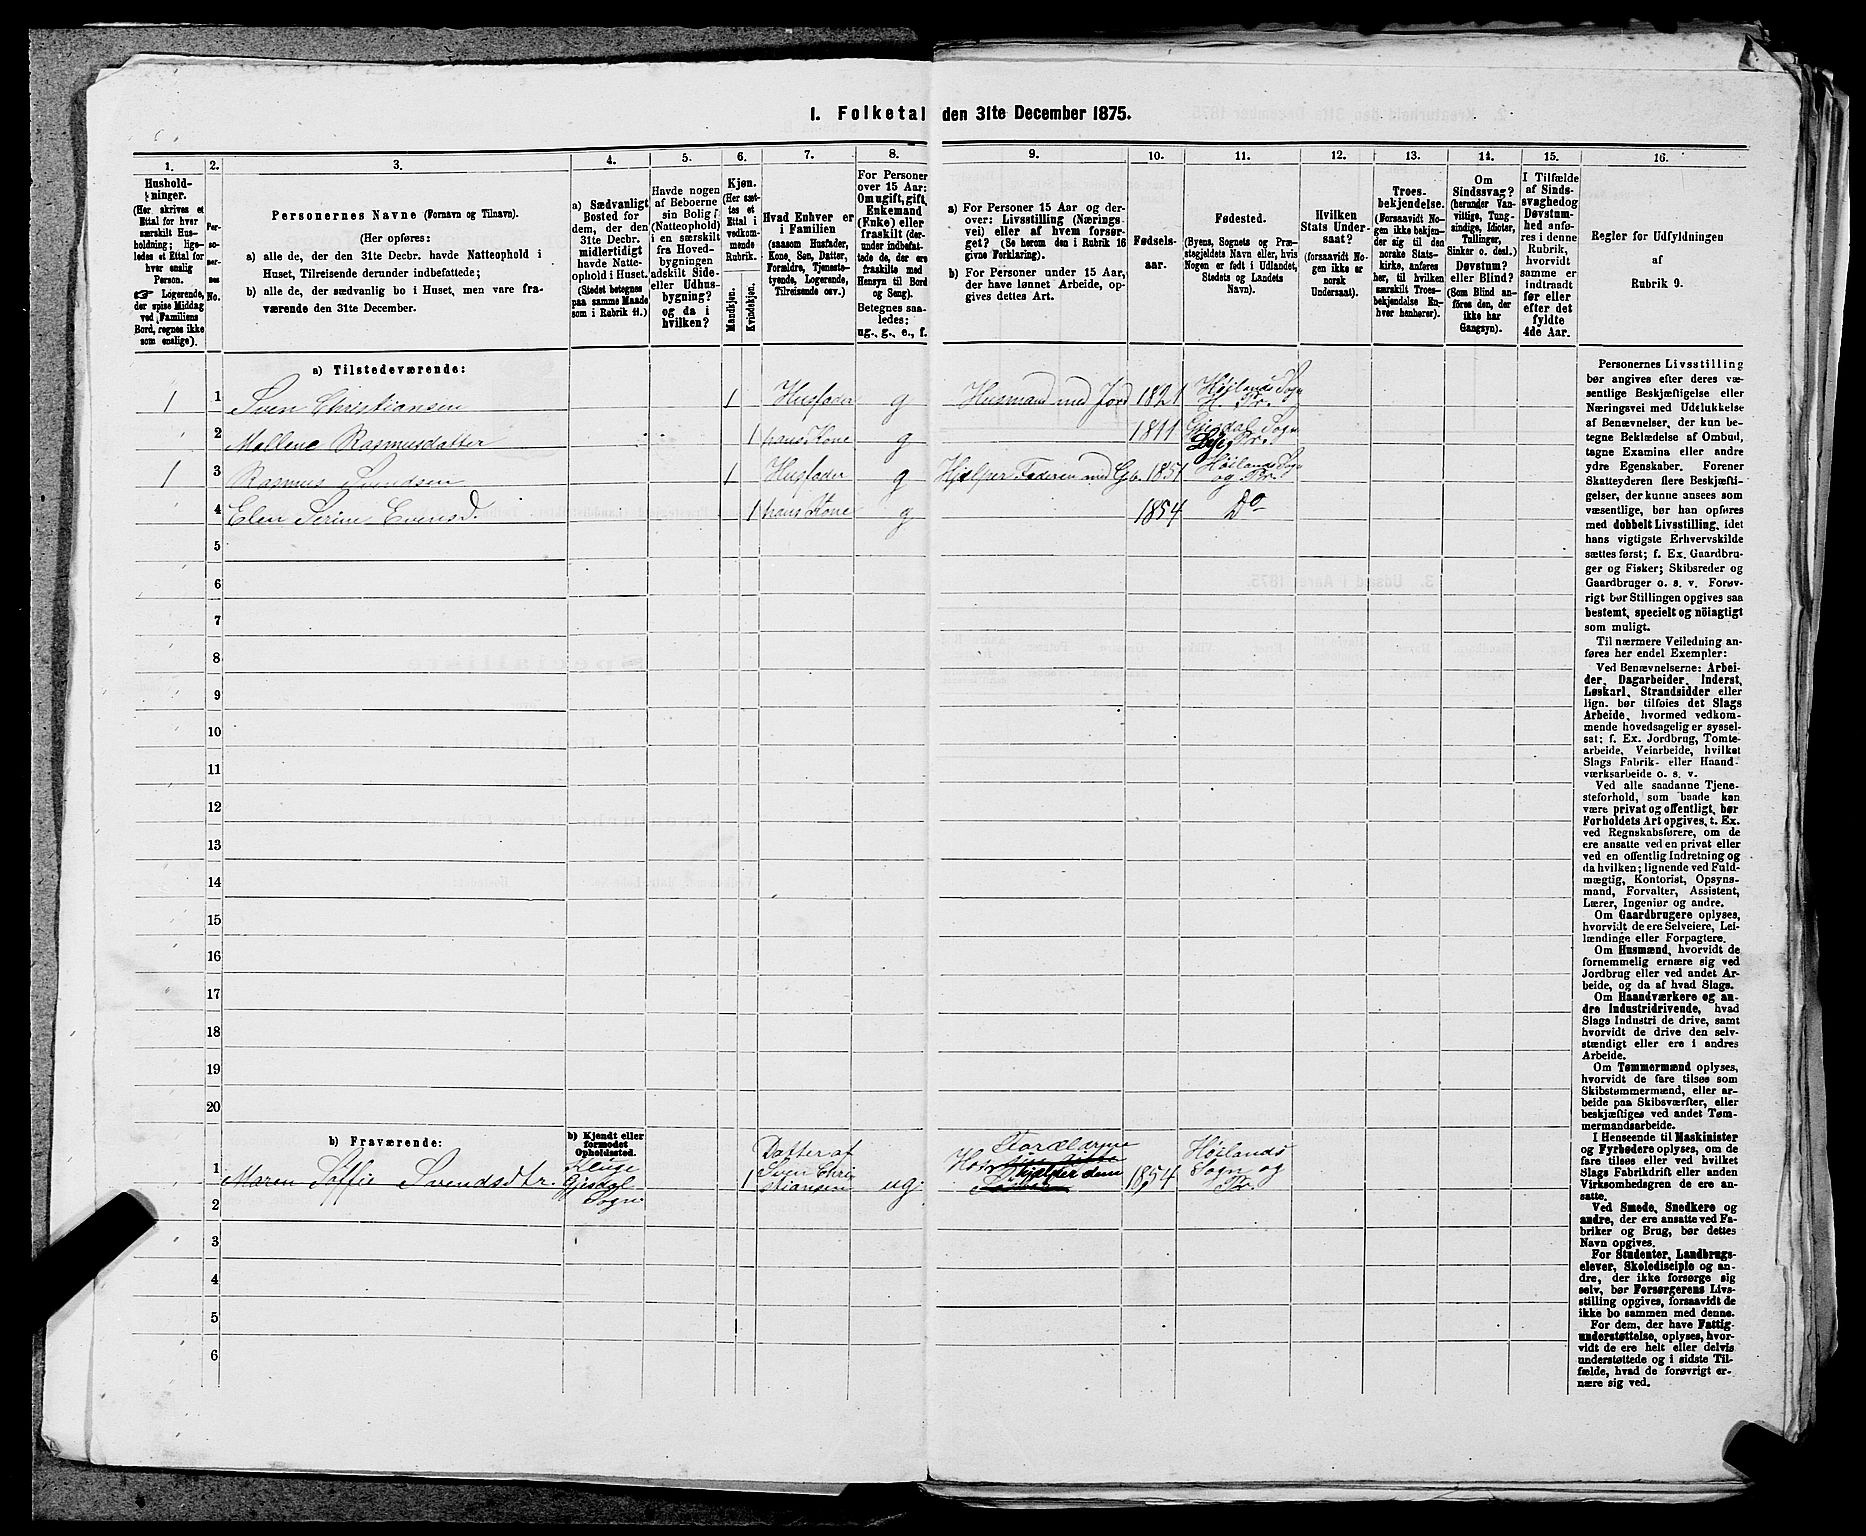 1. Folketal den 31te December 1875.
1. 2. 3. 4. 5. 6. 7. 8. 9. 10. 11. 12. 13. 14. 15. 16.
Hushold-
ninger.
(Her skrives et
Ettal for hver
særskilt Hus-
holdning; lige-
ledes et Ettal for
hver enslig
Person.
☞ Logerende,
der spise Middag
ved Familiens
Bord, regnes ikke
som enslige).
Per-
so-
ner-
nes
No.
Personernes Navne (Fornavn og Tilnavn).
(Her opføres:
a) alle de, der den 31te Decbr. havde Natteophold i
Huset, Tilreisende derunder indbefattede;
b) alle de, der sædvanlig bo i Huset, men vare fra-
værende den 31te December.
a) Sædvanligt
Bosted for
dem, der den
31te Decbr.
midlertidigt
havde Natte-
ophold i Huset.
(Stedet betegnes
paa samme Maade
som i Rubrik 11.)
Havde nogen
af Beboerne
sin Bolig
(Natteophold)
i en særskilt
fra Hoved-
bygningen
adskilt Side-
eller Udhus-
bygning?
og da i
hvilken?
Kjøn.
(Her sæt-
tes et
Ettal i
vedkom-
mende
Rubrik.
Mandkjøn.
Kvindekjøn.
Hvad Enhver er
i Familien
(saasom Husfader,
Kone, Søn, Datter,
Forældre, Tjeneste-
tyende, Logerende,
Tilreisende osv.)
For Personer
over 15 Aar:
Om ugift, gift,
Enkemand
(Enke) eller
fraskilt (der-
under indbefat-
tede de, der ere
fraskilte med
Hensyn til Bord
og Seng).
Betegnes saa-
ledes:
ug., g., e., f.
a) For Personer 15 Aar og der-
over: Livsstilling (Nærings-
vei) eller af hvem forsør-
get? (Se herom den i Rubrik 16
givne Forklaring).
b) For Personer under 15 Aar,
der have lønnet Arbeide, op-
gives dettes Art.
Fødsels-
aar.
Fødested.
(Byens, Sognets og Præ-
stegjeldets Navn, eller hvis
Nogen er født i Udlandet,
Stedets og Landets
Navn).
Hvilken
Stats Under-
saat?
(forsaavidt No-
gen ikke er
norsk
Undersaat).
Troes-
bekjendelse.
(Forsaavidt No-
gen ikke bekjen-
der sig til den
norske Stats-
kirke, anføres
her, til hvilket
særskilt Troes-
bekjendelse En-
hver henhører).
Om
Sindssvag?
(herunder Van-
vittige, Tung-
sindige, Idioter,
Tullinger,
Sinker o. desl.)
Døvstum?
eller Blind?
(Som Blind an-
føres den, der
ikke har
Gangsyn).
I Tilfælde
af Sinds-
svaghed og
Døvstum-
hed anfø-
res i denne
Rubrik,
hvorvidt
samme er
indtraadt
før eller
efter det
fyldte
4de Aar.
Regler for Udfyldningen
af
Rubrik 9.
a) Tilstedeværende:
1 1 Sven Christiansen 1 Husfader g Husmand med Jord 1821 Høilands Sogn
H. Pr.
2 Mallene Rasmusdatter 1 hans Kone g 1811 Gjesdal Sogn
Lye Pr.
1 3 Rasmus Svendsen 1 Husfader g Hjælper Faderen med Gb. 1851 Høilands Sogn
og Pr.
4 Elen Serine Evensd. 1 hans Kone g 1854 Do
5
6
7
8
9
10
11
12
13
14
15
16
17
18
19
20
b) Fraværende:
b) Kjendt eller
formodet
Opholdssted.
1 Maren Soffie Svendsdtr. Kluge
Gjesdal
Sogn 1 Datter af
Sven Chri
stiansen ug. Forældrene
hjælper dem 1854 Høilands
Sogn og
Pr.
2
3
4
5
6
Personernes Livsstilling
bør angives efter deres væ-
sentlige Beskjæftigelse eller
Næringsvei med Udelukkelse
af Benævnelser, der kun be-
tegne Beklædelse af Ombud,
tagne Examina eller andre
ydre Egenskaber. Forener
Skatteyderen flere Beskjæfti-
gelser, der kunne ansees som
væsentlige, bør han opføres
med dobbelt Livsstilling, idet
hans vigtigste Erhvervskilde
sættes først; f. Ex. Gaardbru-
ger og Fisker; Skibsreder og
Gaardbruger o. s. v. Forøv-
rigt bør Stillingen opgives saa
bestemt, specielt og nöiagtigt
som muligt.
Til nærmere Veiledning an-
føres her endel Exempler:
Ved Benævnelserne: Arbei-
der, Dagarbeider, Inderst,
Løskarl, Strandsidder eller
lign. bør tilføies det Slags
Arbeide, hvormed vedkom-
mende hovedsagelig er syssel-
sat; f. Ex. Jordbrug, Tomte-
arbeide, Veiarbeide, hvilket
Slags Fabrik- eller Haand-
værksarbeide o. s. v.
Ved alle saadanne Tjene-
steforhold, som baade kan
være privat og offentligt, bør
Forholdets Art opgives, t. Ex.
ved Regnskabsførere, om de
ere ansatte ved en privat eller
ved en offentlig Indretning og
da hvilken; lignende ved Fuld-
mægtig, Kontorist, Opsyns-
mand, Forvalter, Assistent,
Lærer, Ingeniør og andre.
Om Gaardbrugere oplyses,
hvorvidt de ere Selveiere, Lei-
lændinge eller Forpagtere.
Om Husmænd, hvorvidt de
fornemmelig ernære sig ved
Jordbrug eller ved andet Ar-
beide, og da af hvad Slags.
Om Haandværkere og an-
dre Industridrivende, hvad
Slags Industri de drive, samt
hvorvidt de drive den selv-
stændigt eller ere i andres
Arbeide.
Om Tømmermænd oplyses,
hvorvidt de fare tilsøs som
Skibstømmermænd, eller ar-
beide paa Skibsværfter, eller
beskjæftiges ved andet Tøm-
mermandsarbeide.
I Henseende til Maskinister
og Fyrbødere oplyses, om de
fare tilsøs eller ved hvilket
Slags Fabrikdrift eller anden
Virksomhedsgren de ere an-
satte.
Ved Smede, Snedkere og
andre, der ere ansatte ved Fa-
briker og Brug, bør dettes
Navn opgives.
For Studenter, Landbrugs-
elever, Skoledisciple og an-
dre, der ikke forsørge sig
selv, bør Forsørgerens Livs-
stilling opgives, forsaavidt de
ikke bo sammen med denne.
For dem, der have Fattig-
understøttelse, oplyses, hvor-
vidt de ere helt eller delvis
understøttede og i sidste Til-
fælde, hvad de forøvrigt er-
nære sig ved.